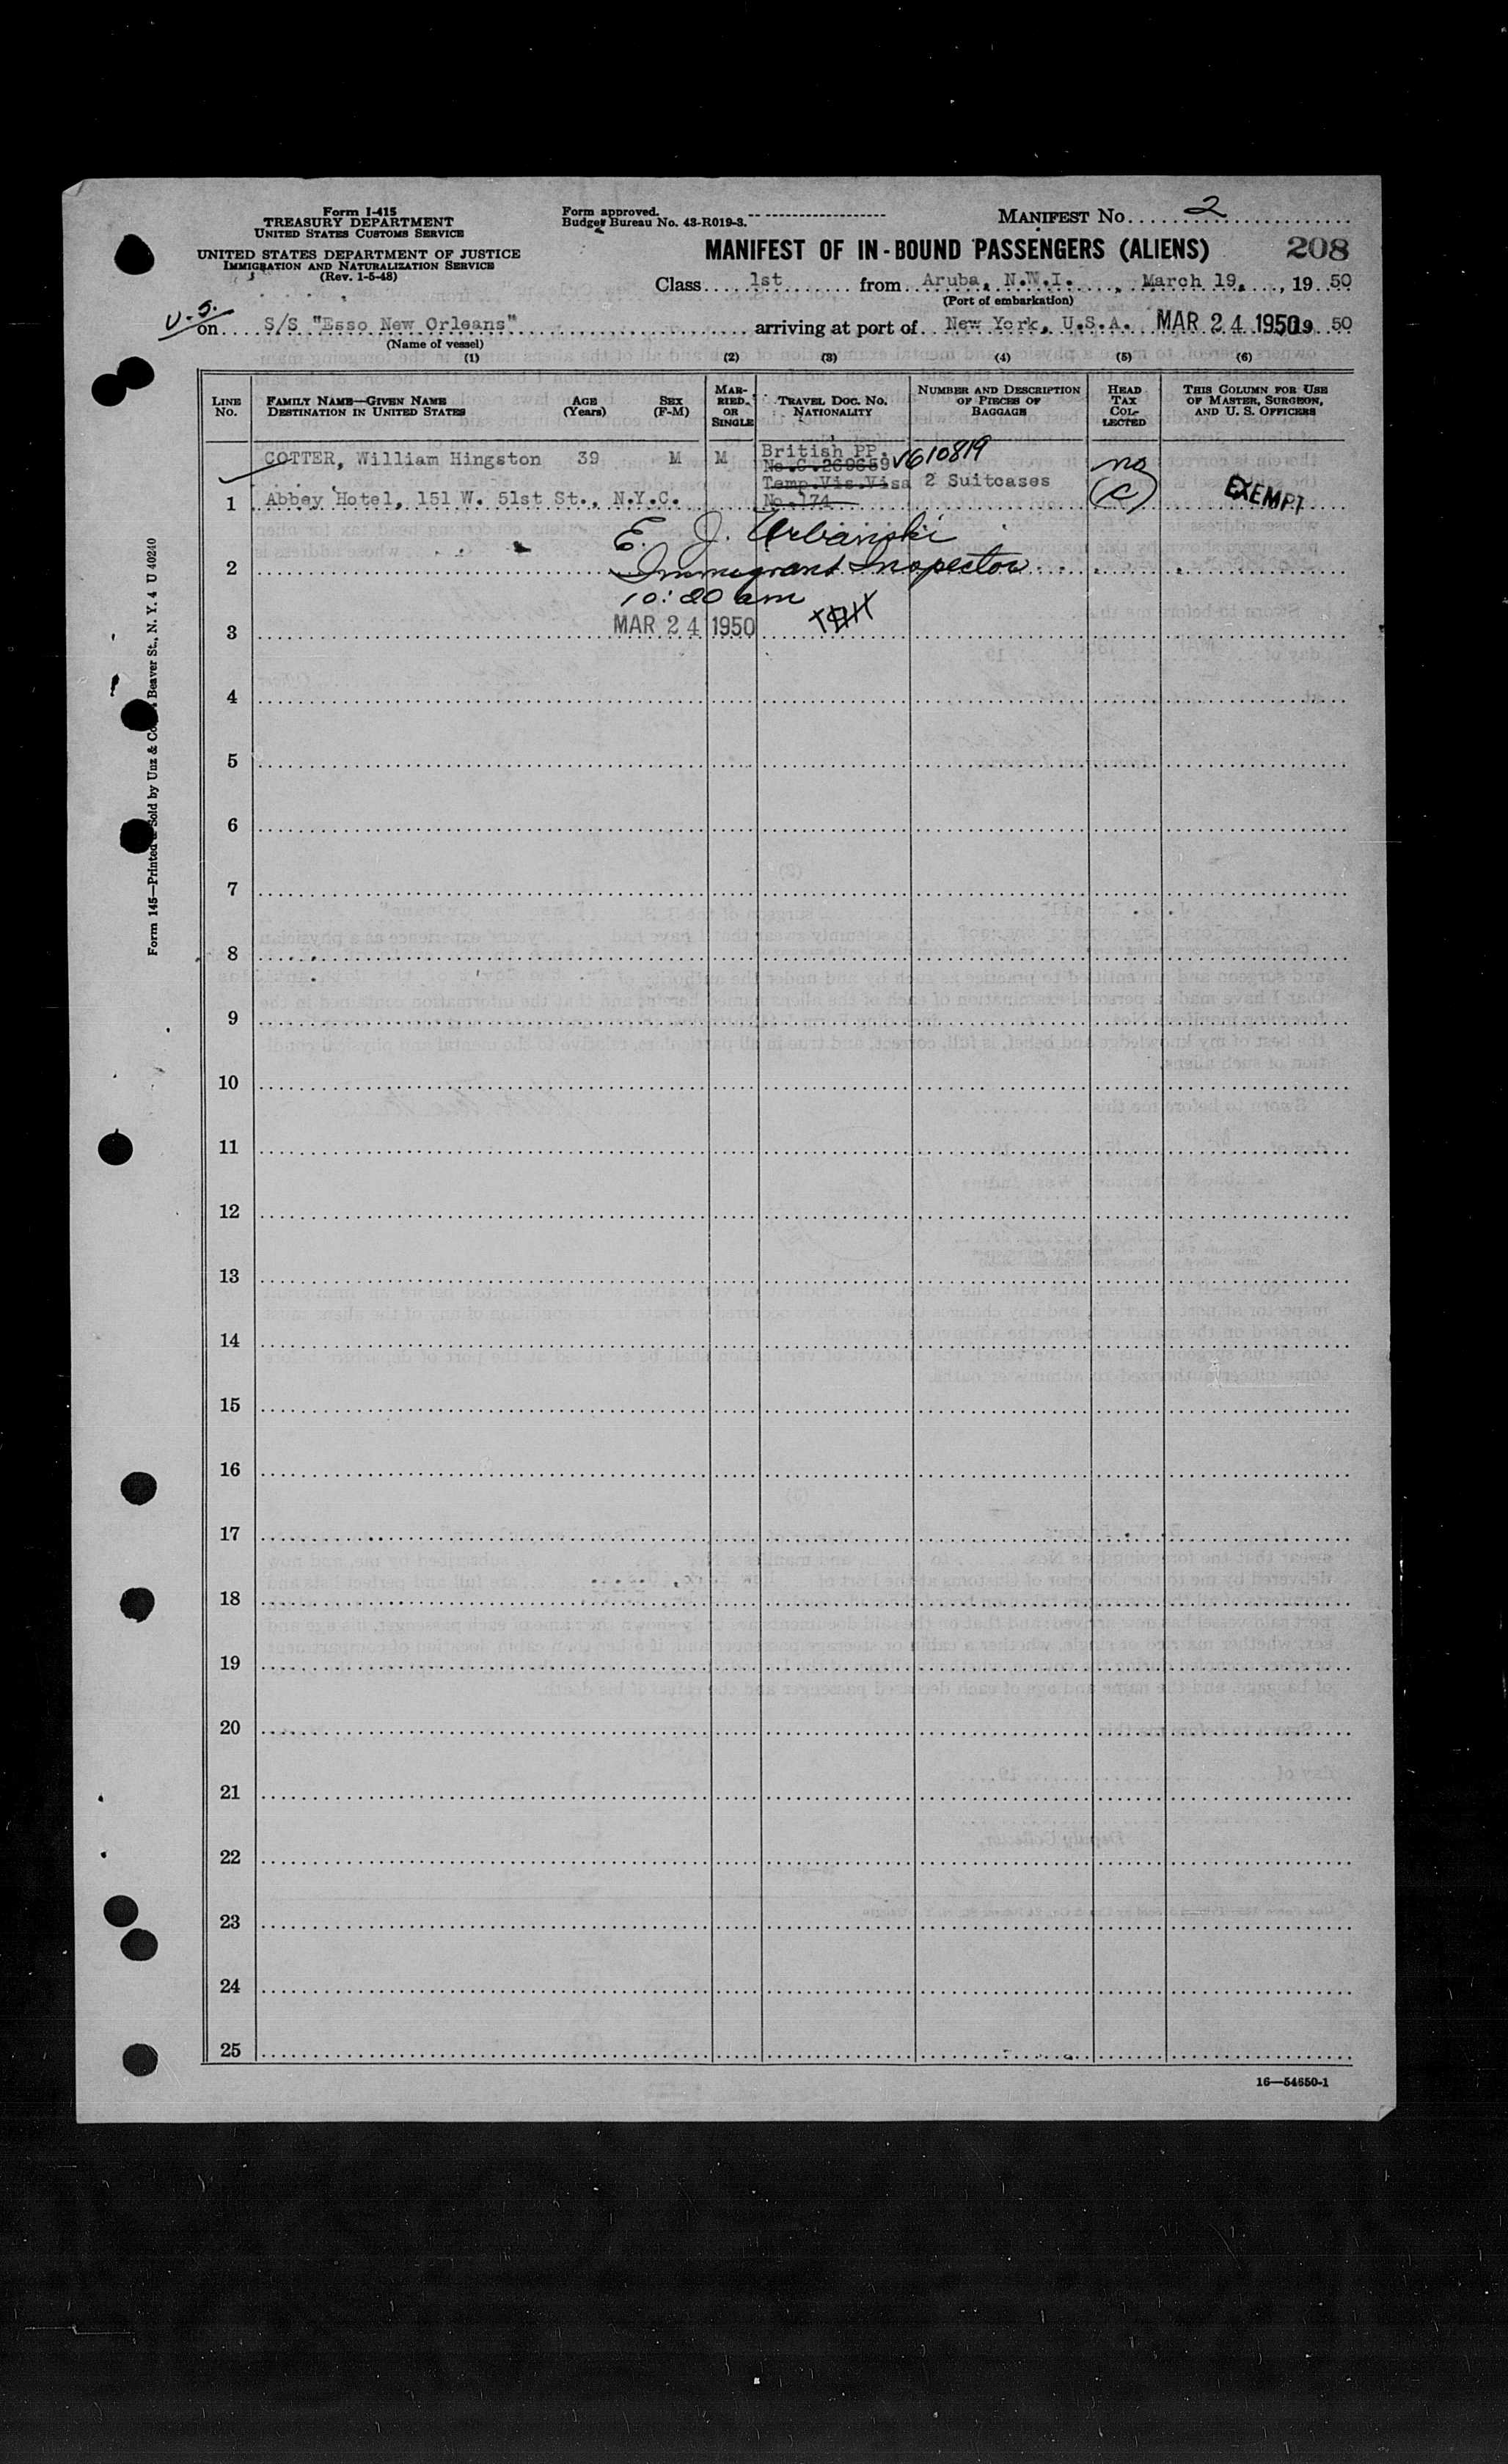 Form I-415
TREASURY DEPARTMENT
UNITED STATES CUSTOMS SERVICE
UNITED STATES DEPARTMENT OF JUSTICE
IMMIGRATION AND NATURALIZATION SERVICE
(Rev. 1-5-48)
Form approved.
Budget Bureau No. 43-R019-3.
MANIFEST No. 2
MANIFEST OF IN-BOUND PASSENGERS (ALIENS) 208
Class 1st from Aruba, N.W.I., March 19, 19 50
(Port of embarkation)
U.S.
on S/S "Esso New Orleans" arriving at port of New York, U.S.A. MAR 24 1950 19 50
(Name of vessel)
(1) (2) (3) (4) (5) (6)
LINE No. FAMILY NAME—GIVEN NAME DESTINATION IN UNITED STATES AGE (Years) SEX (F-M) MARRIED OR SINGLE TRAVEL DOC. NO. NATIONALITY NUMBER AND DESCRIPTION OF PIECES OF BAGGAGE HEAD TAX COLLECTED THIS COLUMN FOR USE OF MASTER, SURGEON, AND U. S. OFFICERS
COTTER, William Hingston 39 M M British PP.
No.C.269659 V610819 no
Temp.Vis.Visa 2 Suitcases
1 Abbey Hotel, 151 W. 51st St., N.Y.C. No. 174 (C) EXEMPT
E. J. Urbanski
2 Immigrant Inspector
10:20 am
3 MAR 24 1950
4
5
6
7
8
9
10
11
12
13
14
15
16
17
18
19
20
21
22
23
24
25
16—54650-1
Form 145—Printed Sold by Unz & Co. Beaver St., N. Y. 4 U 40240